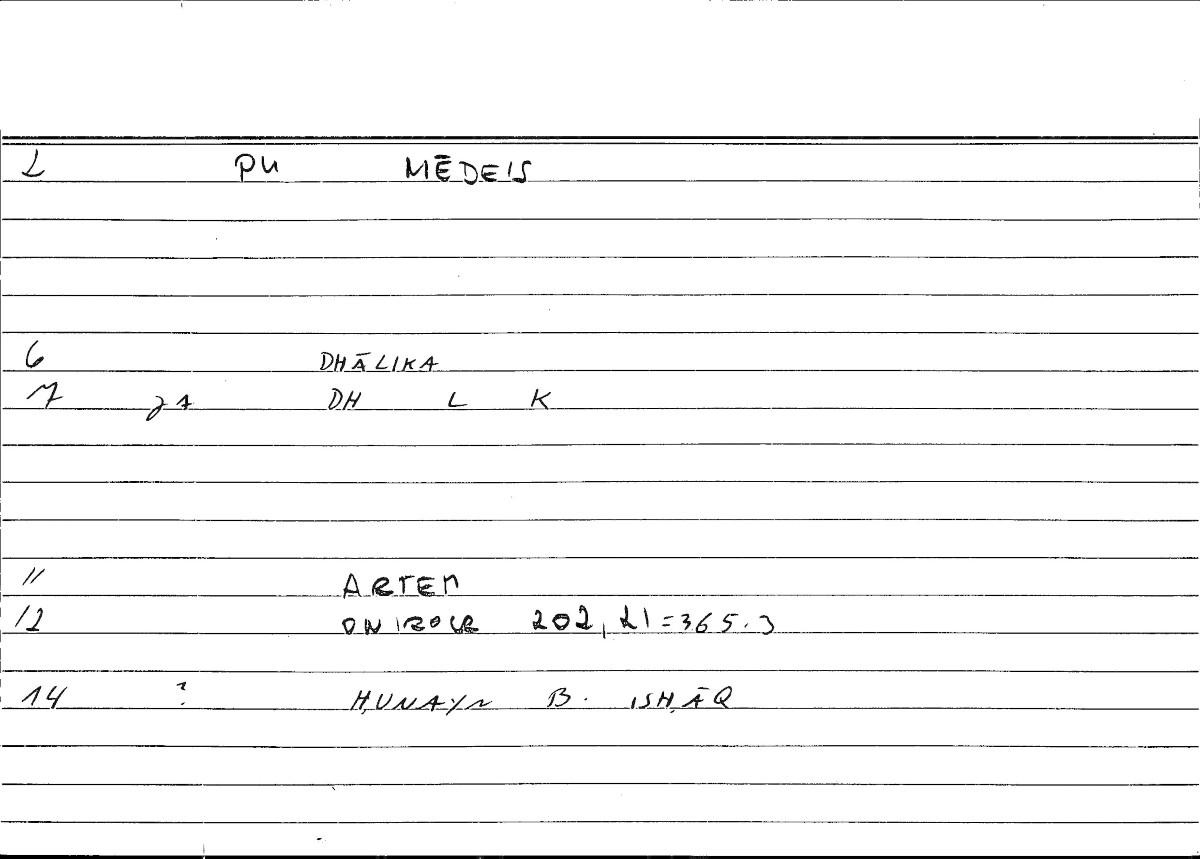 2 PU MĒDEIS
6 DHĀLIKA
7 71 DH L K
11 ARTEM
12 ONIROCR 202, 21=365.3
14 ? ḤUNAYN B. ISḤĀQ